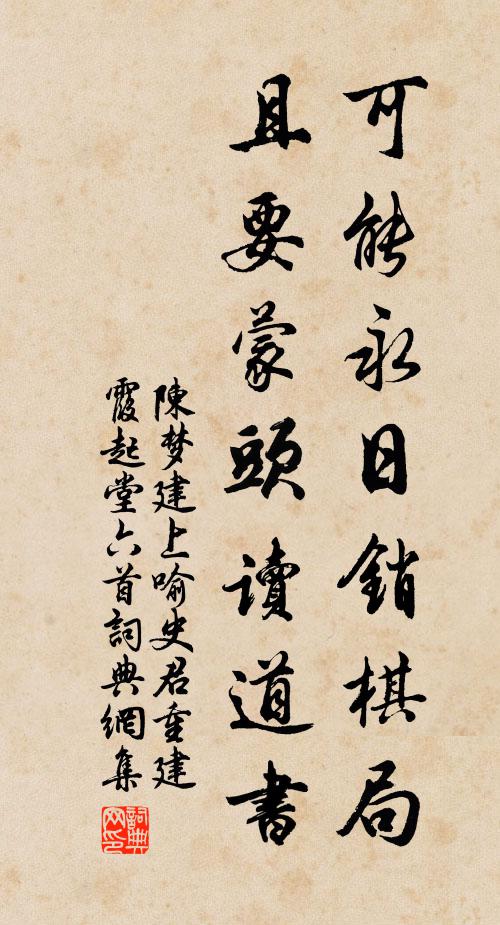 可能永日銷棋局
且要蒙頭讀道書
陳梦建上喻史君重建
霞起堂六首詞典網集
詞典
网印